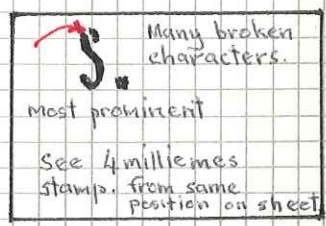 Many broken
characters.
S.
most prominent
See 4 milliemes
stamp. from same
position on sheet